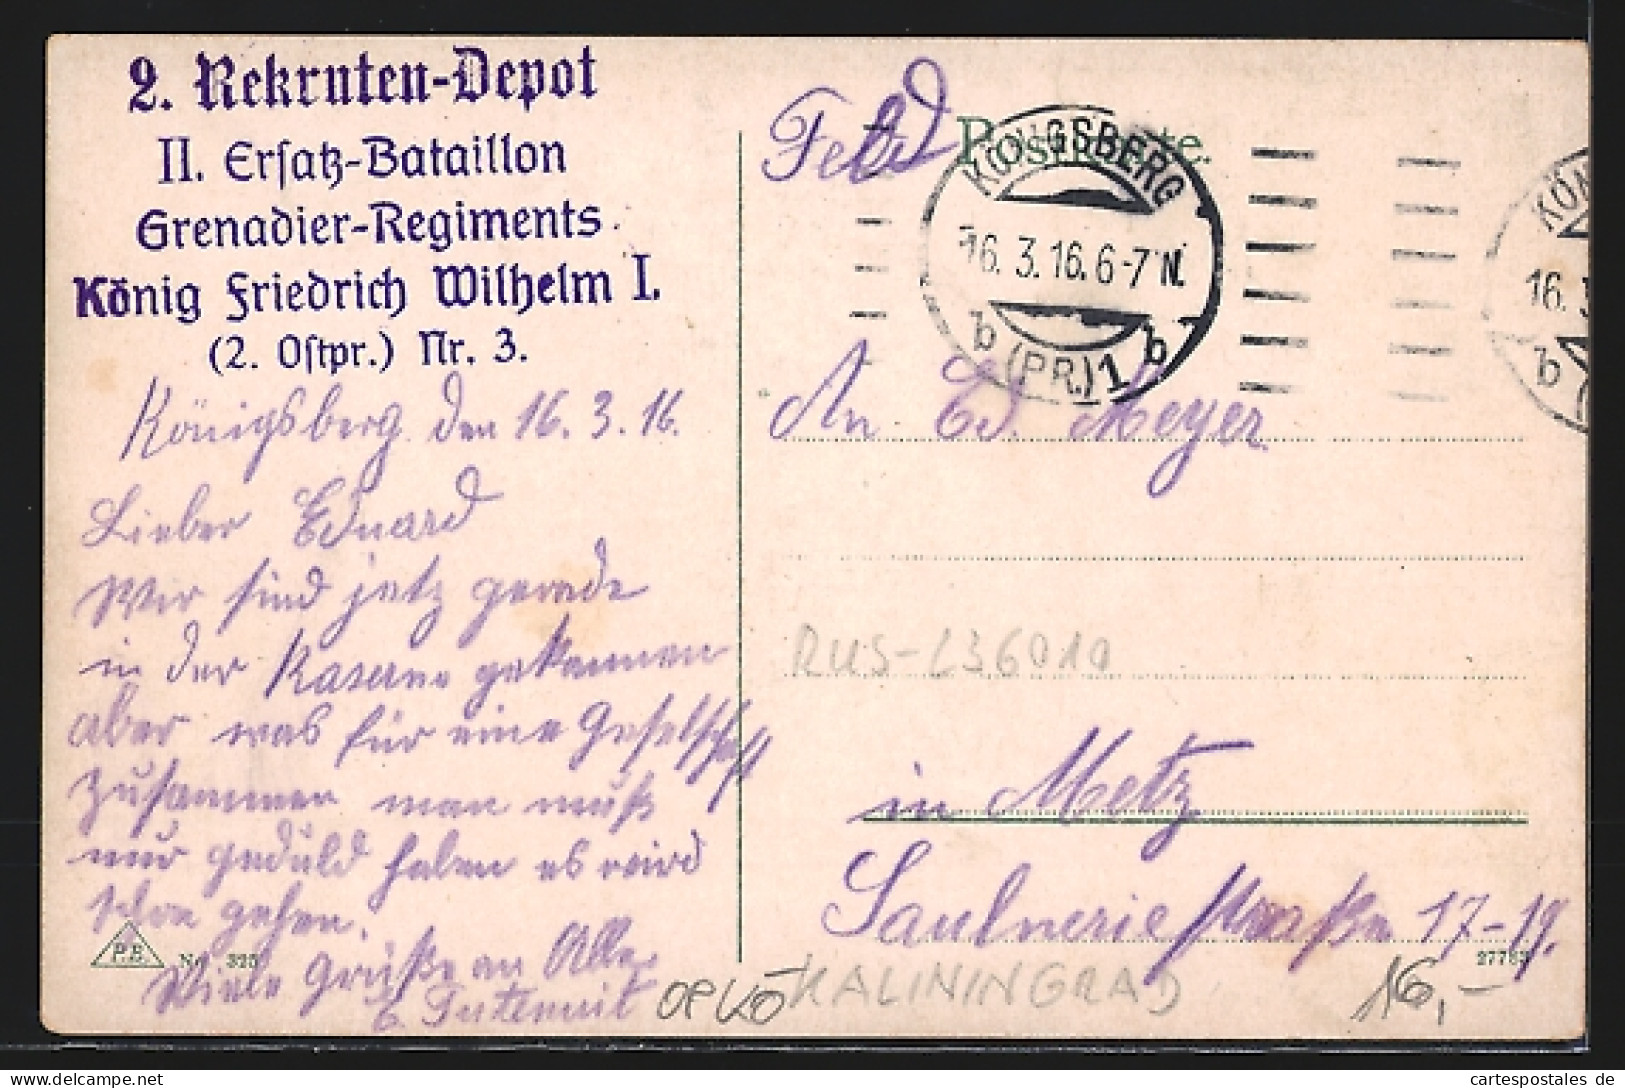 2. Rekruten-Depot
II. Erſatz-Bataillon
Grenadier-Regiments
König Friedrich Wilhelm I.
(2. Oſtpr.) Nr. 3.
Königsberg den 16. 3. 16.
Lieber Eduard
Wir sind jetz gerade
in der Kaserne gekommen
aber was für eine Gesellschaft
zusammen man muß
nur geduld haben es wird
schon gehen.
Viele Grüße an Alle
E.
P.B. No. 325
Feld Postkarte.
KÖNIGSBERG
16. 3. 16. 6-7 N.
b (PR.) 1 b
KÖN
16. 3
b
An Ed. Meyer
RUS-L36010
in Metz
Saulneriestraße 17-19.
27783
KALININGRAD
16,-
cartespostales.de